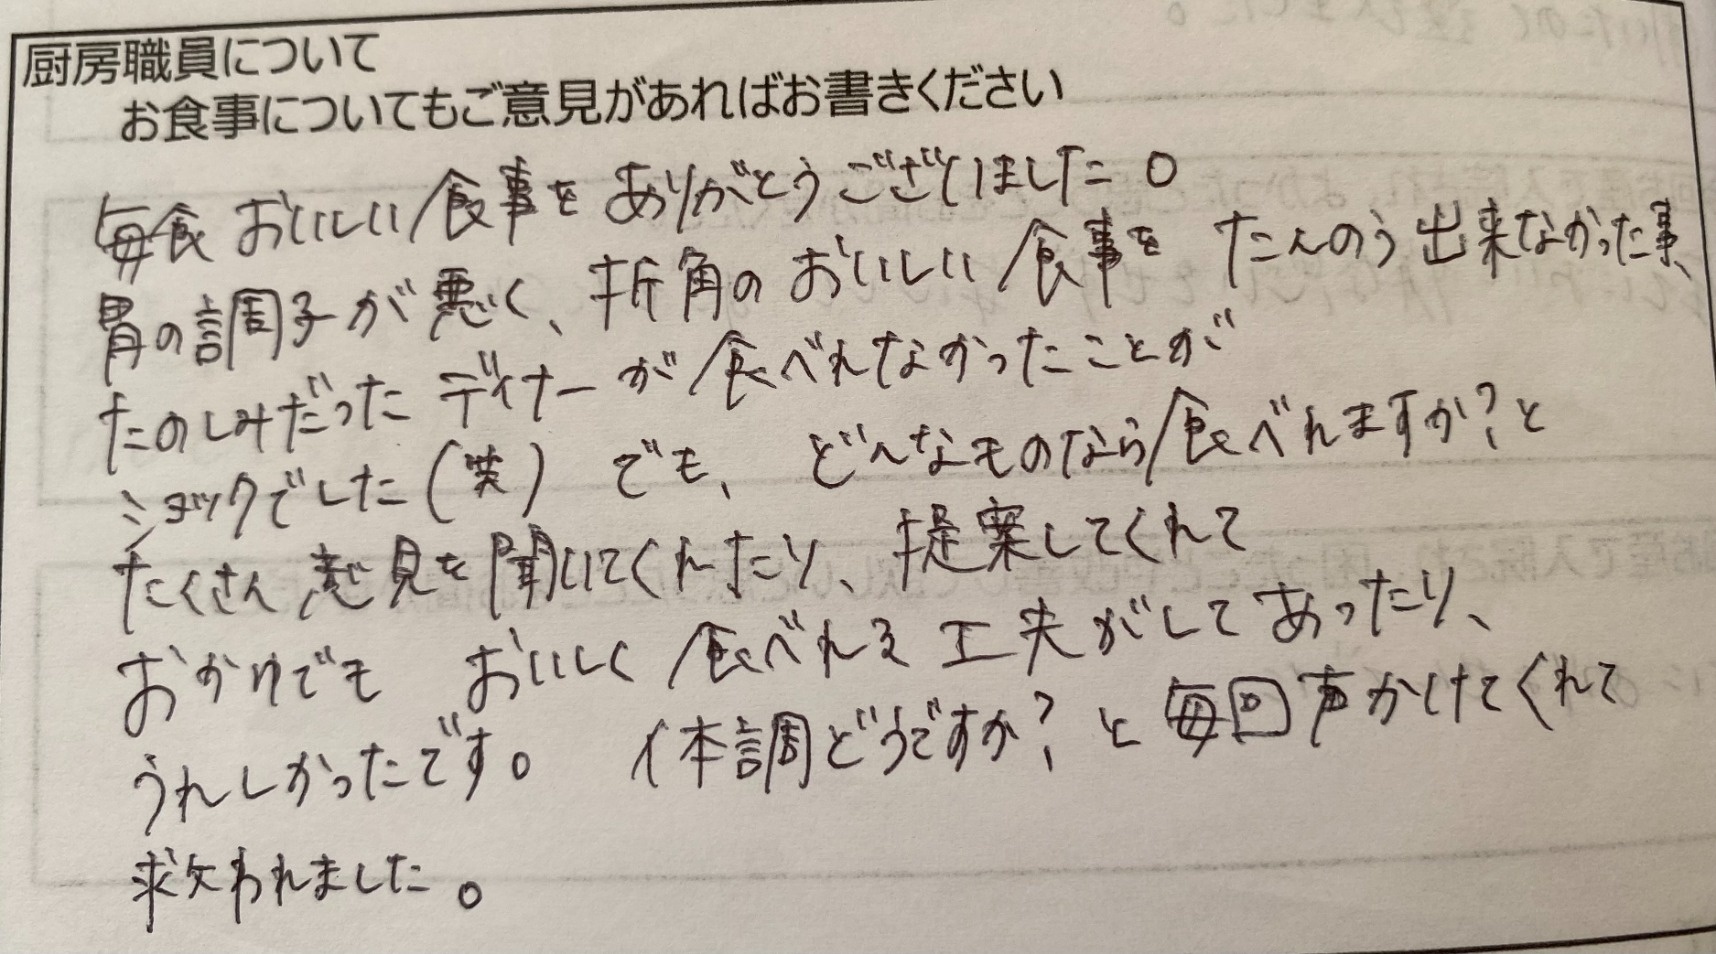 厨房職員について
お食事についてもご意見があればお書きください
毎食 おいしい食事を ありがとうございました。
胃の調子が悪く、折角のおいしい食事を たんのう出来なかった事、
たのしみだったディナーが食べれなかったことが
ショックでした(笑) でも、どんなものなら食べれますか?と
たくさん意見を聞いてくれたり、提案してくれて
おかゆでも おいしく食べれる工夫がしてあったり、
うれしかったです。 体調どうですか?と毎回声かけてくれて
救われました。